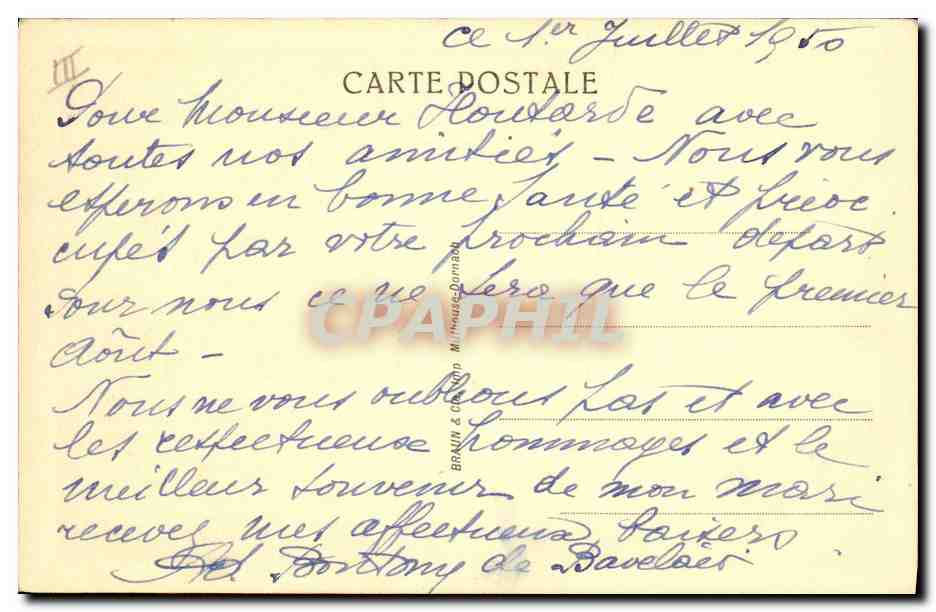 ce 1er Juillet 1950
III
CARTE POSTALE
Pour Monsieur Houtarde avec
toutes nos amitiés - Nous vous
esperons en bonne santé et préoc
cupés par votre prochain départ
Pour nous ce ne sera que le premier
Août -
Nous ne vous oublions pas et avec
les respectueux hommages et le
meilleur souvenir de mon mari
recevez mes affectueux baisers
de Bavelais
BRAUN & Cie, Imp Mulhouse-Dornach
CPAPHIL